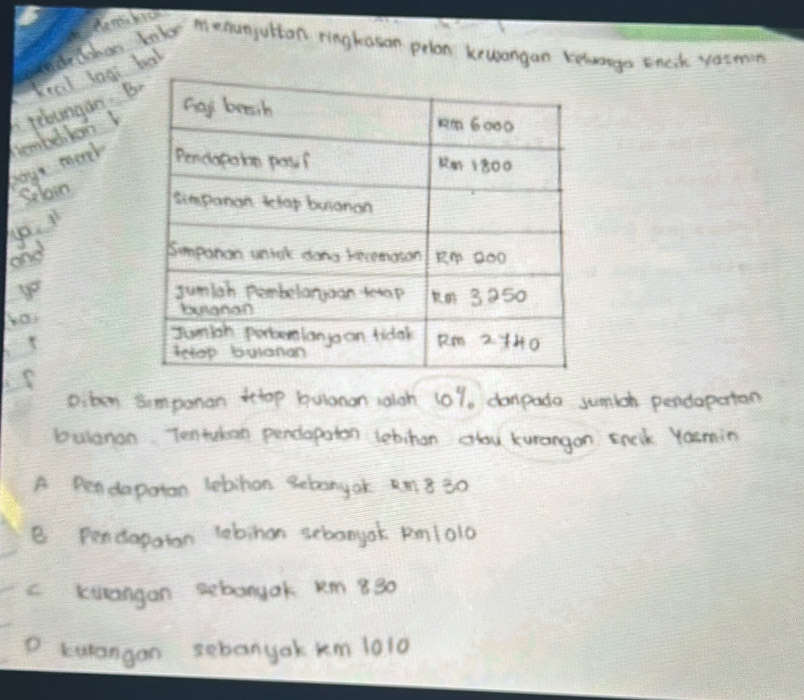 menunjukkan ringkasan pelan kewangan keluarga Encik Yasmin
kecil lagi
Selain
Gaji bersih RM 6000
Pendapatan pasif RM 1800
Simpanan tetap bulanan
Simpanan untuk dana kecemasan RM 200
Jumlah Pembelanjaan tetap bulanan RM 3250
Jumlah Perbemlanjaan tidak tetap bulanan RM 2740
Diberi Simpanan tetap bulanan ialah 10% daripada jumlah pendapatan
bulanan. Tentukan pendapatan lebihan atau kurangan Encik Yasmin
A Pendapatan lebihan sebanyak RM 830
B Pendapatan lebihan sebanyak RM1010
C kurangan sebanyak RM 830
D kurangan sebanyak RM 1010